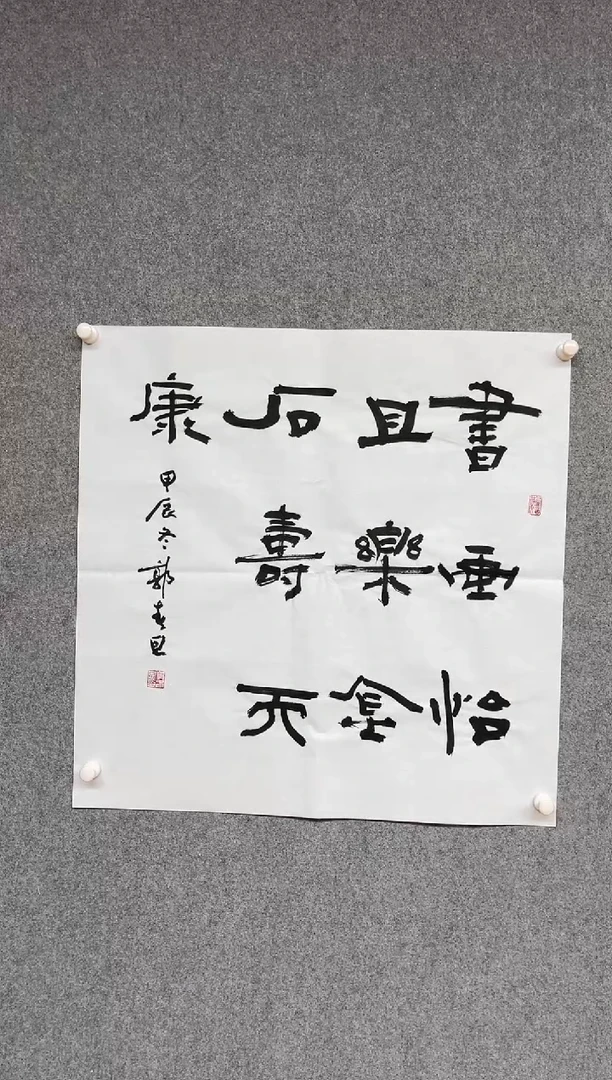 書画怡
且樂金
石壽天
康
甲辰冬郭春